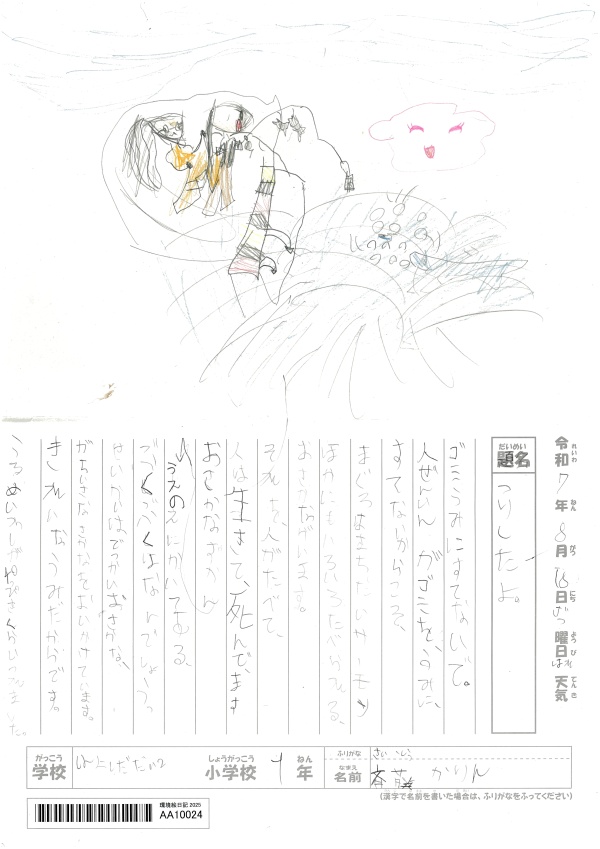 令和7年8月18日げつ曜日はれ天気
れいわ ねん がつ にち ようび てんき
だいめい
題名
つりしたよ。
ゴミうみにすてないで。
人ぜんいんがゴミを、うみに、
すてないからこそ、
まぐろめきちたいサーモン
ほかにもいろいろたべられる、
おさかながいます。
それを、人がたべて、
人は生きて、死んでます
おさかなずかん
うえのえにかいてある、
ぶくぶくはなんでしょうっ
せいかいはでっかいおさかな、
がちいさなさかなをおいかけています。
きれいなうみだからです。
がっこう
学校
しょうがっこう
小学校
1
ねん
年
ふりがな
さいとう
なまえ
名前
斎藤 かりん
(漢字で名前を書いた場合は、ふりがなをふってください)
環境絵日記 2025
AA10024